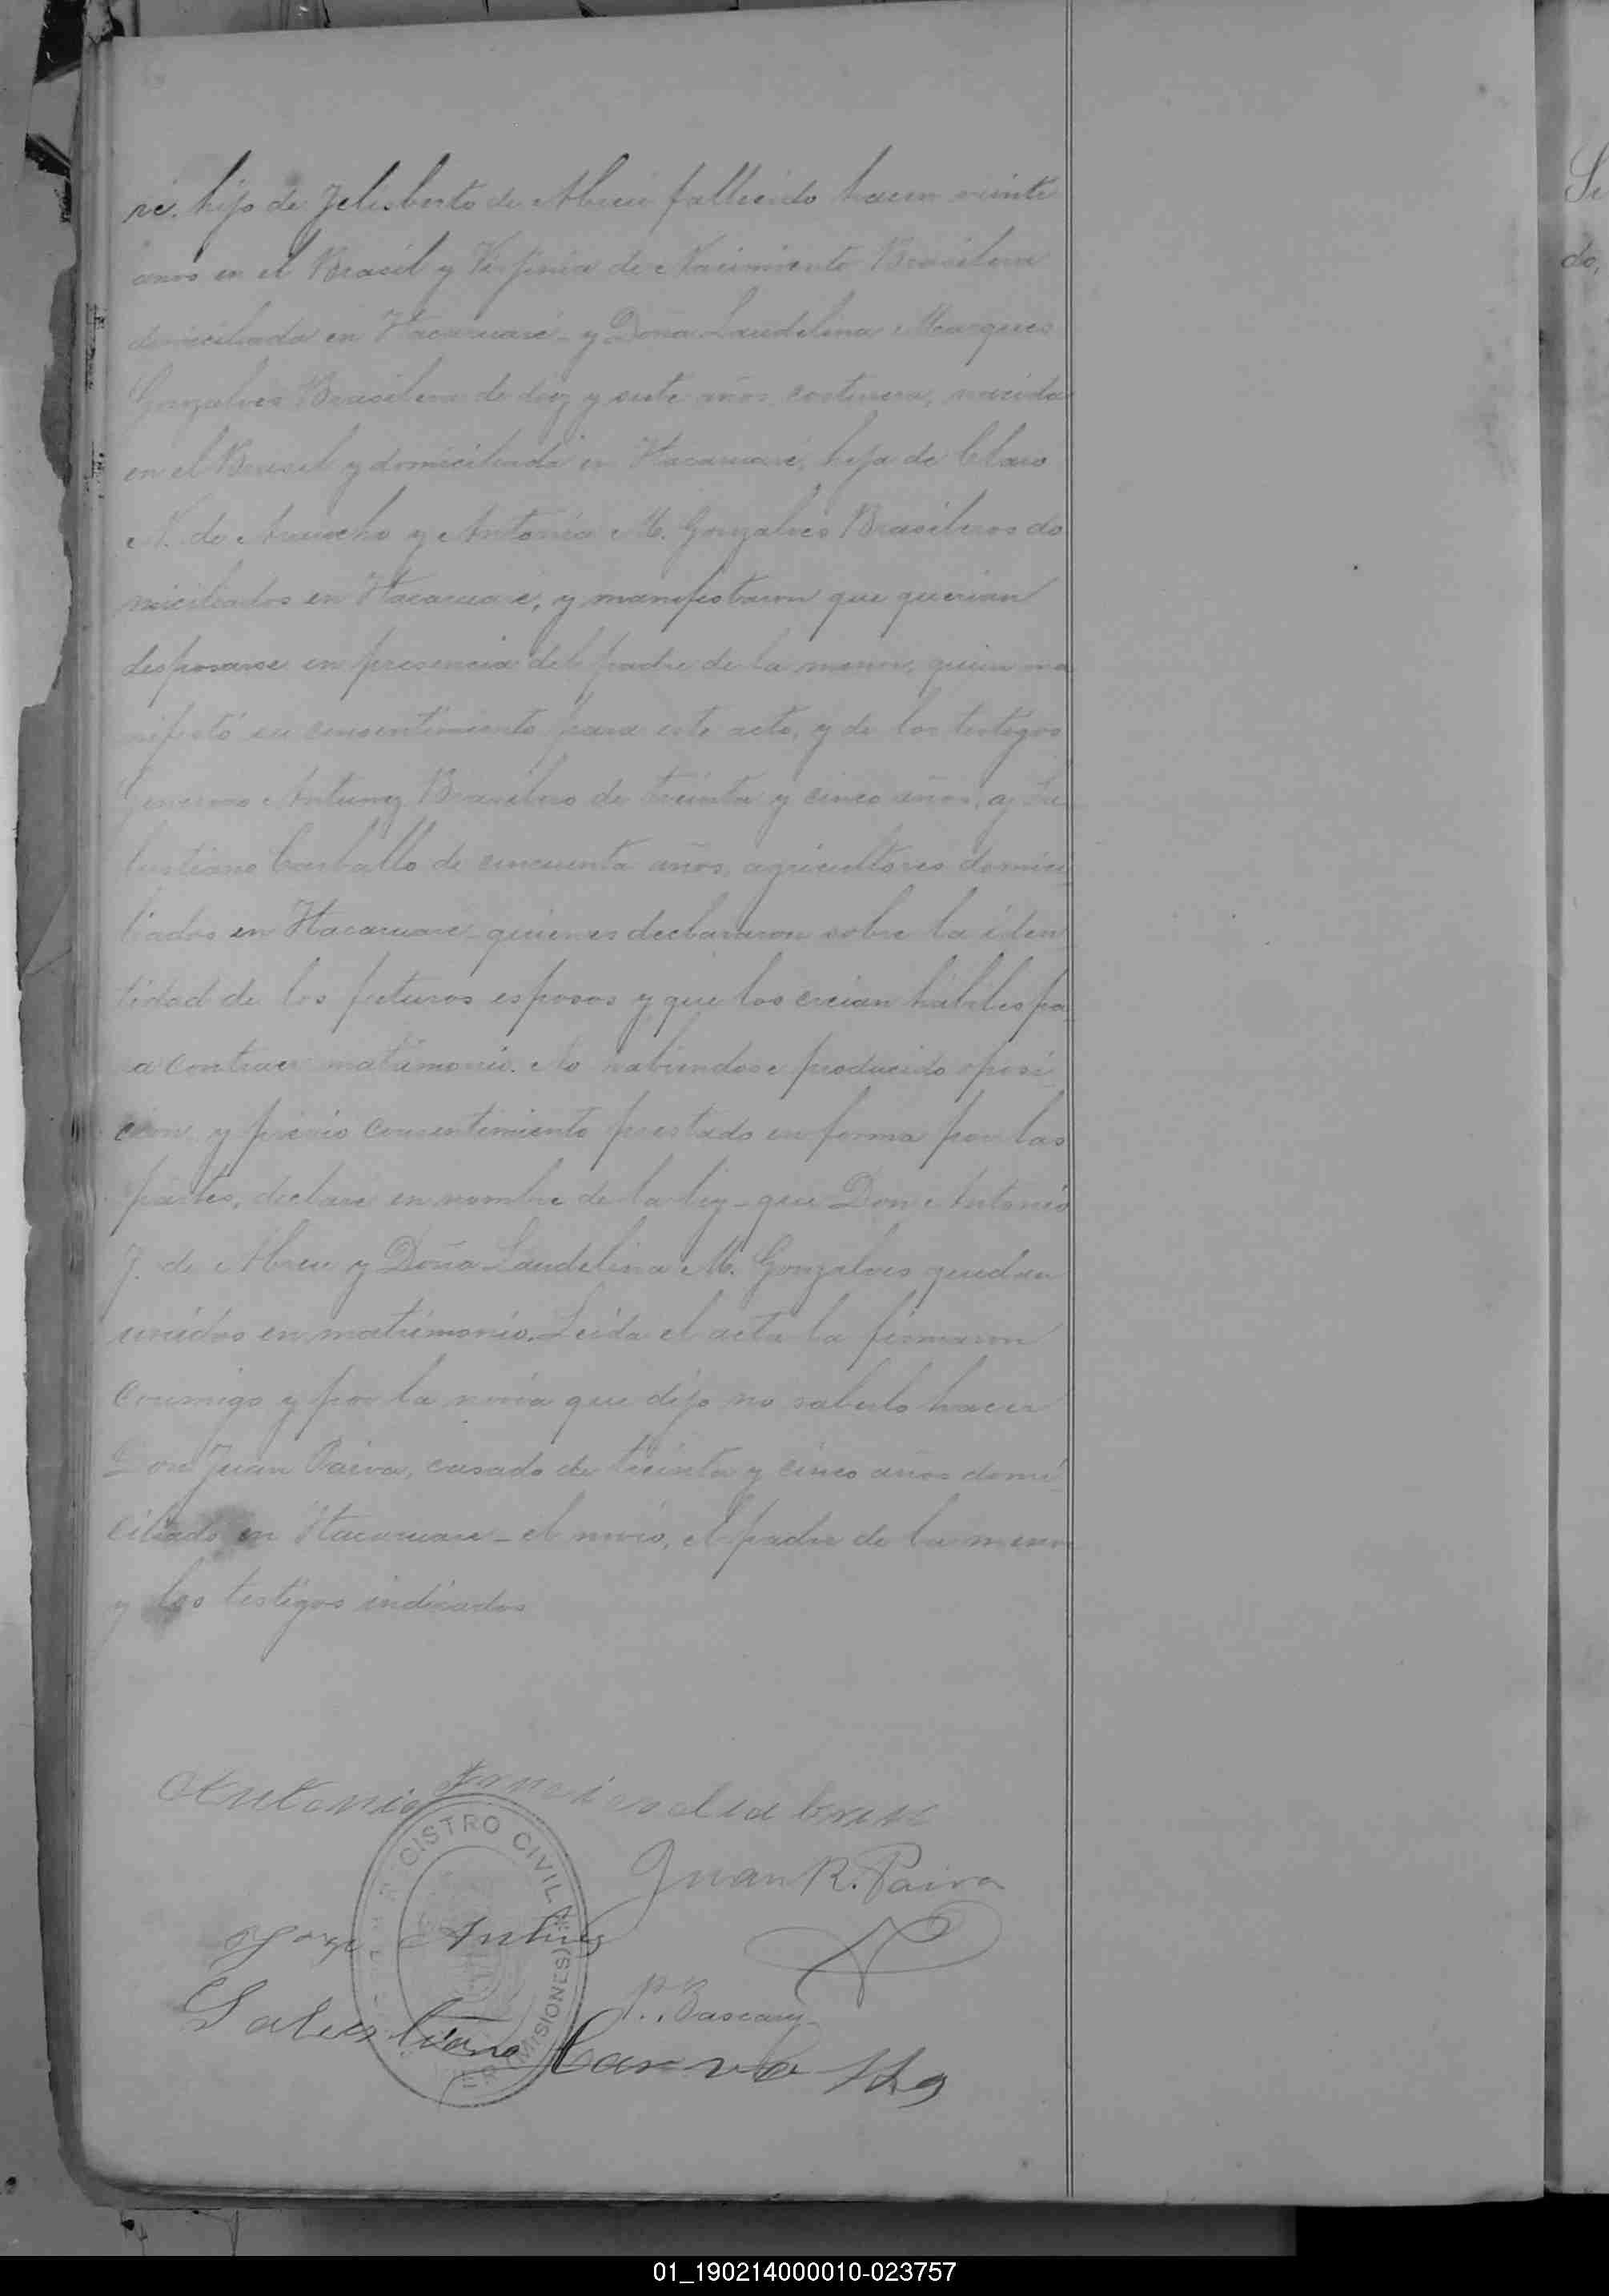 ré, hijo de Felisberto de Abreu fallecido hacen veinte
anos en el Brasil y Virjinia de Nacimiento Brasilera
domiciliada en Itacaruaré - y Doña Laudelina Marques
Gonzalves Brasilera de diez y siete años, costurera, nacida
en el Brasil y domiciliada en Itacaruaré, hija de Claro
N. de y Antonia M. Gonzalves Brasileros do
miciliados en Itacaruaré, y manifestaron que querian
desposarse en presencia del padre de la menor, quien ma
nifestó su consentimiento para este acto, y de los testigos
Antunez Brasilero de treinta y cinco años, y Sa
lustiano Carballo de cincuenta años, agricultores domici
liados en Itacaruaré - quienes declararon sobre la iden
tidad de los futuros esposos y que los creian hábiles pa
ra contraer matrimonio. No habiendose producido oposi
cion y prévio consentimiento prestado en forma por las
partes, declaré en nombre de la ley - que Don Antonio
J. de Abreu y Doña Laudelina M. Gonzalves quedan
unidos en matrimonio. Leida el acta la firmaron
conmigo y por la novia que dijo no saberlo hacer
Don Juan Paiva, casado de treinta y cinco años domi
ciliado en Itacaruaré - el novio, el padre de la menor
y los testigos indicados
Antonio de abreu
Juan R. Paiva
Antunes
Salustiano Carvalho
REGISTRO CIVIL
(MISIONES)
Si
do,
01_190214000010-023757